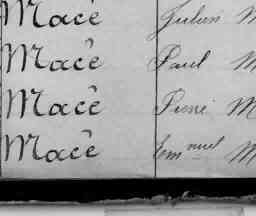 Macê Julien M
Macê Paul M
Macê Pierre M
Macê Emnuel M